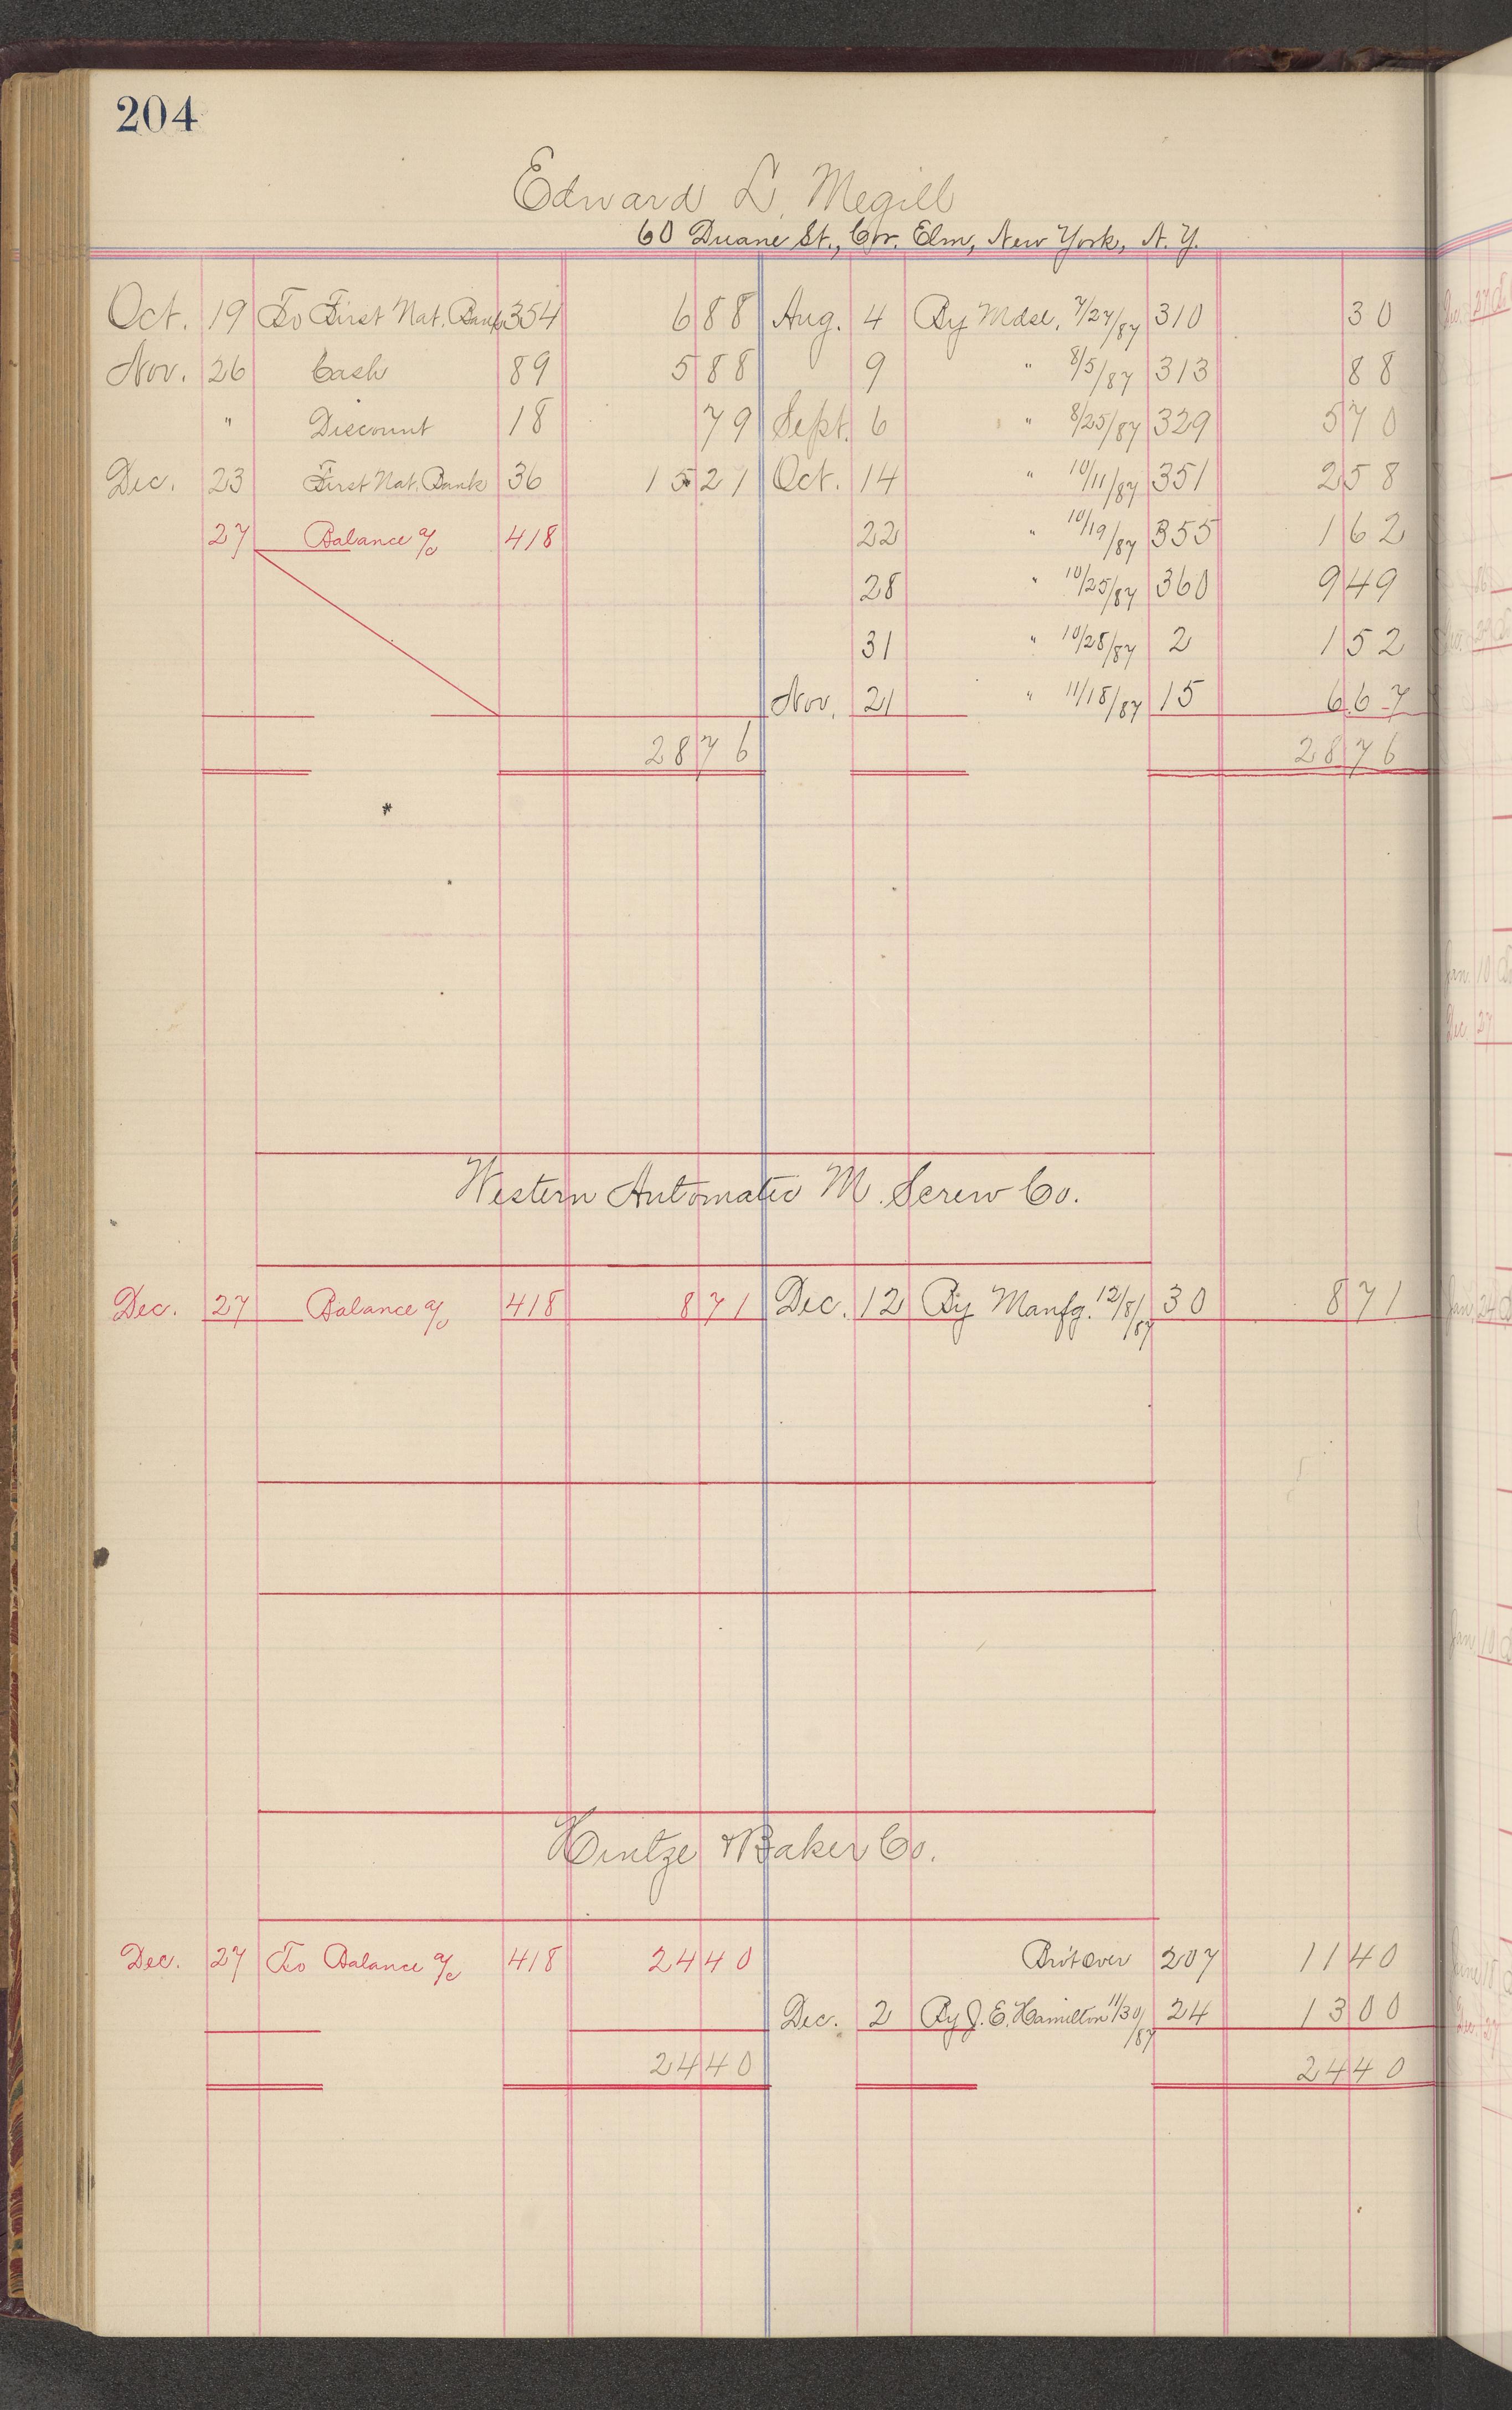 204
Edward L. Megill
60 Duane St., Cor. Elm, New York, N. Y.
Oct. 19 To First Nat. Bank 354 6 88 Aug. 4 By Mdse, 7/27/87 310 30
Nov. 26 Cash 89 5 88 9 " 8/5/87 313 88
" Discount 18 79 Sept. 6 " 8/25/87 329 5 70
Dec. 23 First Nat. Bank 36 15 21 Oct. 14 " 10/11/87 351 2 58
27 Balance a/c 418 22 " 10/19/87 355 1 62
28 " 10/25/87 360 9 49
31 " 10/28/87 2 1 52
Nov. 21 " 11/18/87 15 6 67
28 76 28 76
Western Automatic M. Screw Co.
Dec. 27 Balance a/c 418 8 71 Dec. 12 By Manfg. 12/8/87 30 8 71
Hintze & Baker Co.
Dec. 27 To Balance a/c 418 24 40 Bro't Over 207 11 40
Dec. 2 By J. E. Hamilton 11/30/87 24 13 00
24 40 24 40